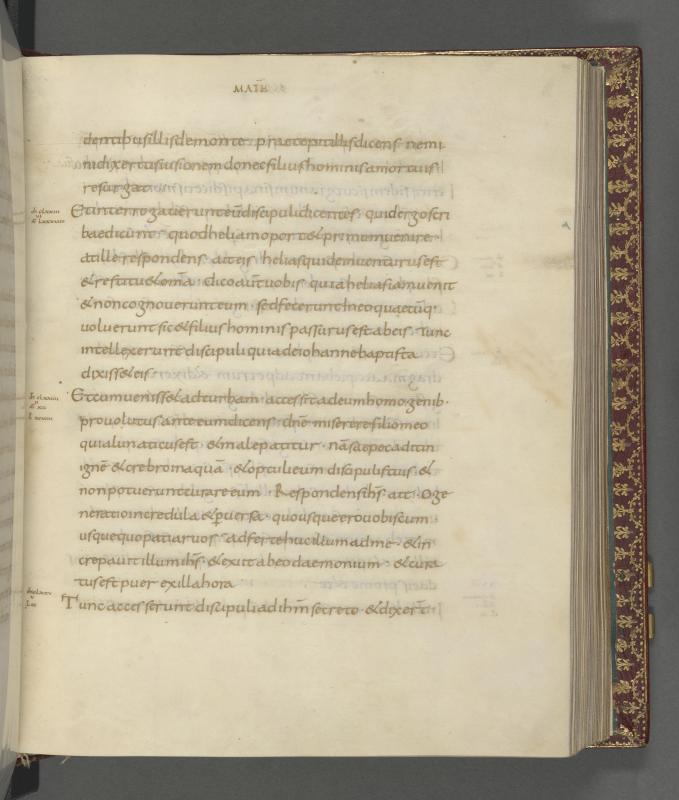 MATH
dentibus illis de monte praecepit illis dicens nemi
ni dixeritis uisionem donec filius hominis a mortuis
resurgat
Et interrogauerunt eū discipuli dicentes quid ergo scri
bae dicunt quod heliam oportet primum uenire
at ille respondens ait eis helias quidem uenturus est
et restituet omā dico aut̄ uobis quia helias iam uenit
et non cognouerunt eum sed fecerunt in eo quaecūq·
uoluerunt sic et filius hominis passurus est ab eis Tunc
intellexerunt discipuli quia de iohanne baptista
dixisset eis
Et cum uenisset ad turbam accessit ad eum homo genib·
prouolutus ante eum dicens dn̄e miserere filio meo
quia lunaticus est et male patitur nā saepe cadit in
ignē et crebro in aquā et optuli eum discipulis tuis et
non potuerunt curare eum Respondens ih̄s ait O ge
neratio incredula et ꝑuersa quousque ero uobiscum
usque quo patiar uos adferte huc illum ad me et in
crepauit illum ih̄s et exiit ab eo daemonium et cura
tus est puer ex illa hora
Tunc accesserunt discipuli ad ih̄m secreto et dixer̄t